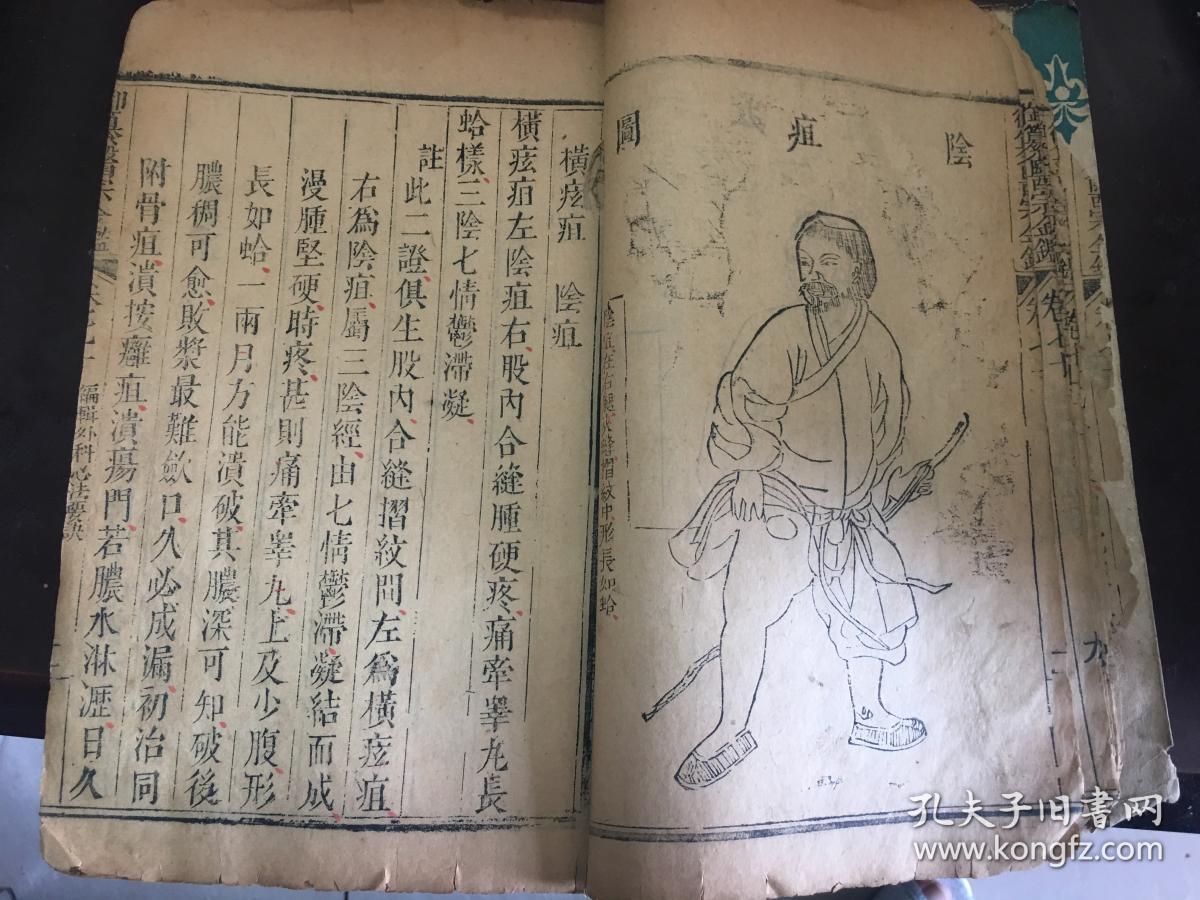 陰疽圖
陰疽在右腿合縫摺紋中形長如蛤
橫痃疽 陰疽
橫痃疽左陰疽右股內合縫腫硬疼痛牽睾丸長
蛤樣三陰七情鬱滯凝
註此二證俱生股內合縫摺紋間左爲橫痃疽
右爲陰疽屬三陰經由七情鬱滯凝結而成
漫腫堅硬時疼甚則痛牽睾丸上及少腹形
長如蛤一兩月方能潰破其膿深可知破後
膿稠可愈敗漿最難斂口久必成漏初治同
附骨疽潰按癰疽潰瘍門若膿水淋瀝日久
編輯外科心法要訣
九
孔夫子旧書网
www.kongfz.com